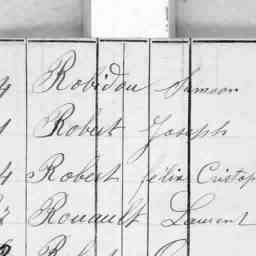 4 Robidou Samson
1 Robert Joseph
4 Robert félix Cristop
2 Rouault Laurent